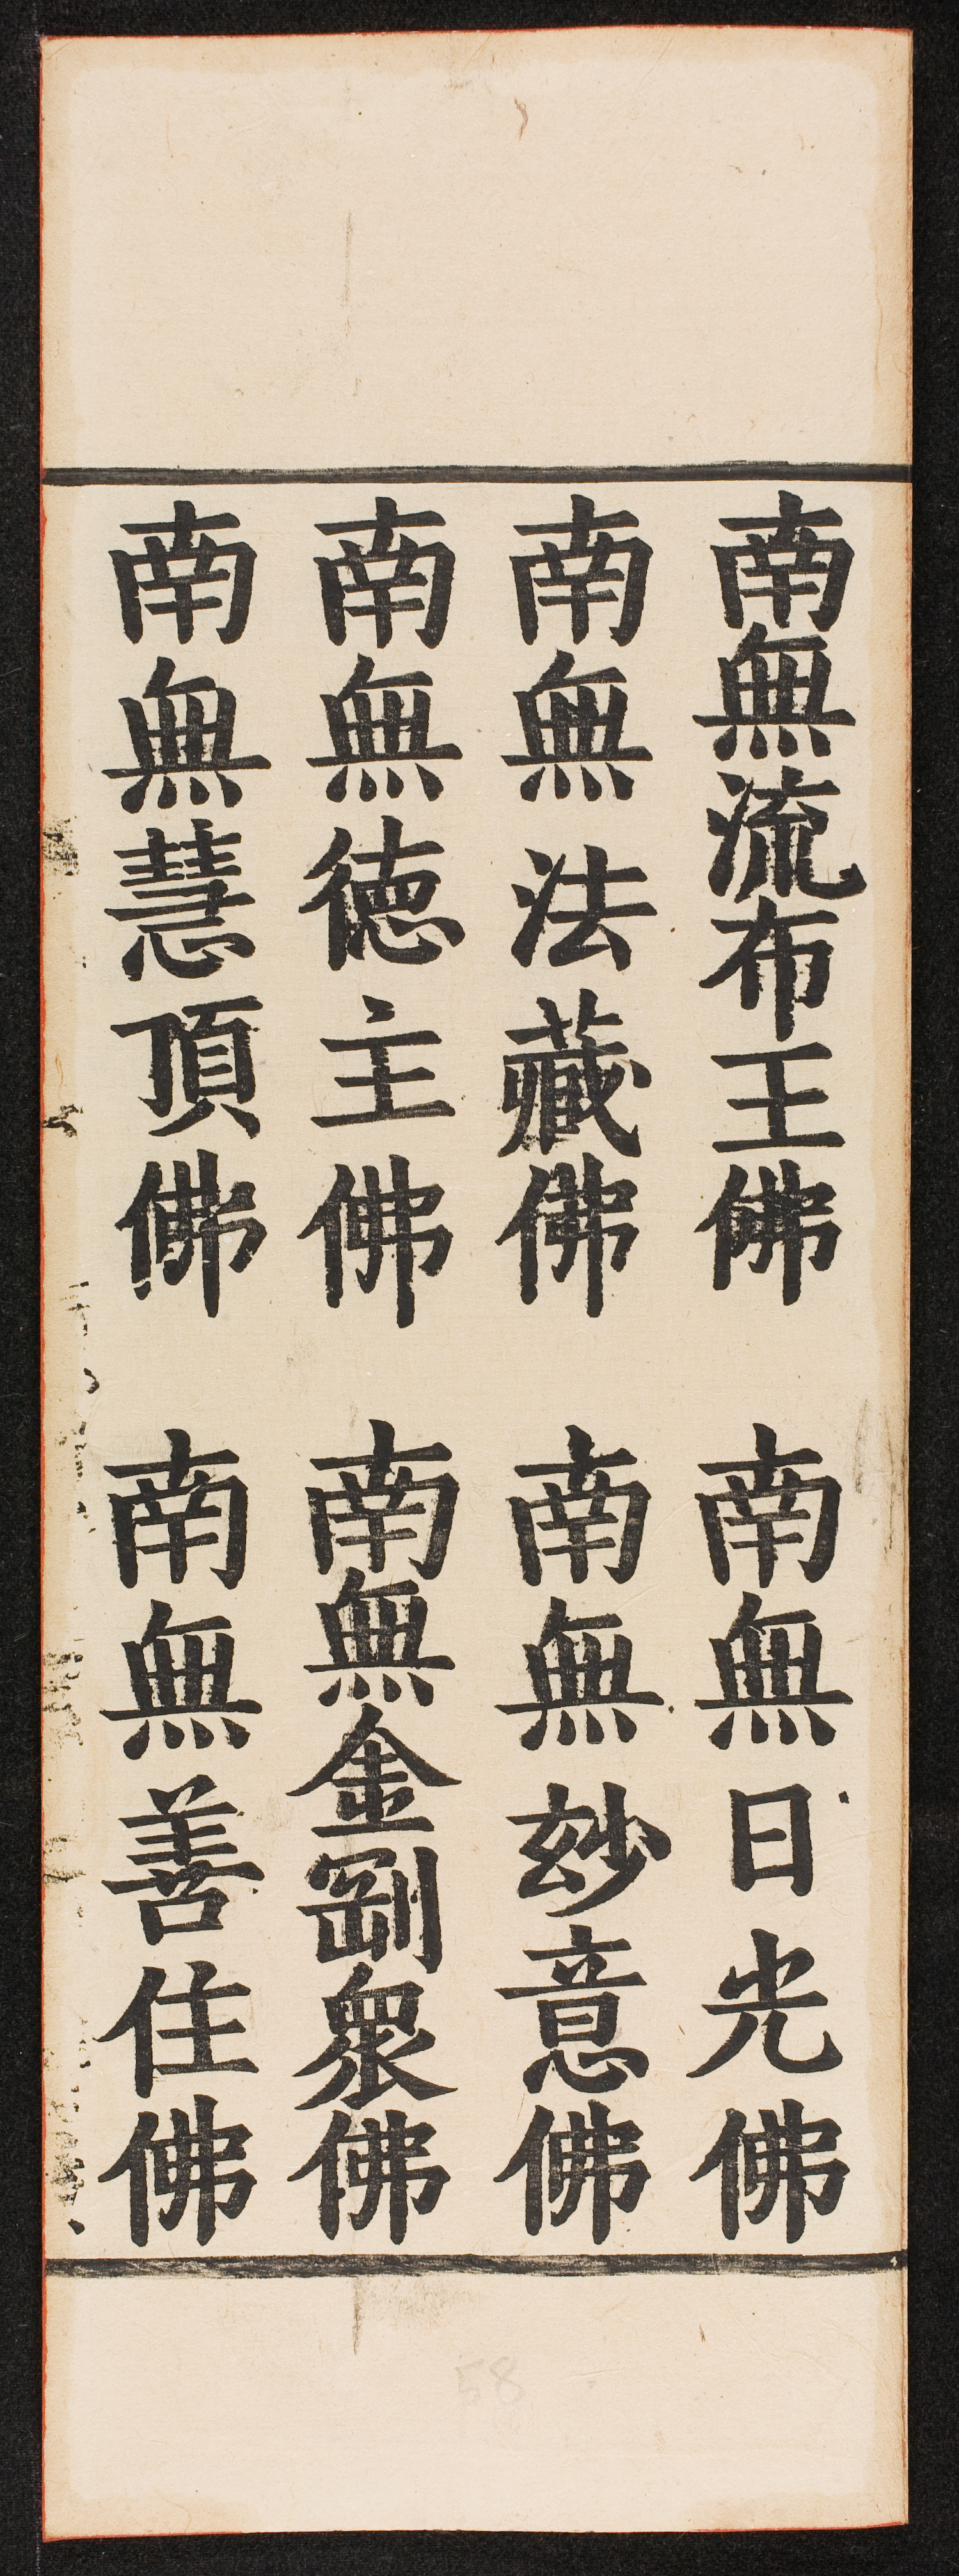 南無流布王佛 南無日光佛
南無法藏佛 南無玅意佛
南無德主佛 南無金剛眾佛
南無慧頂佛 南無善住佛
58